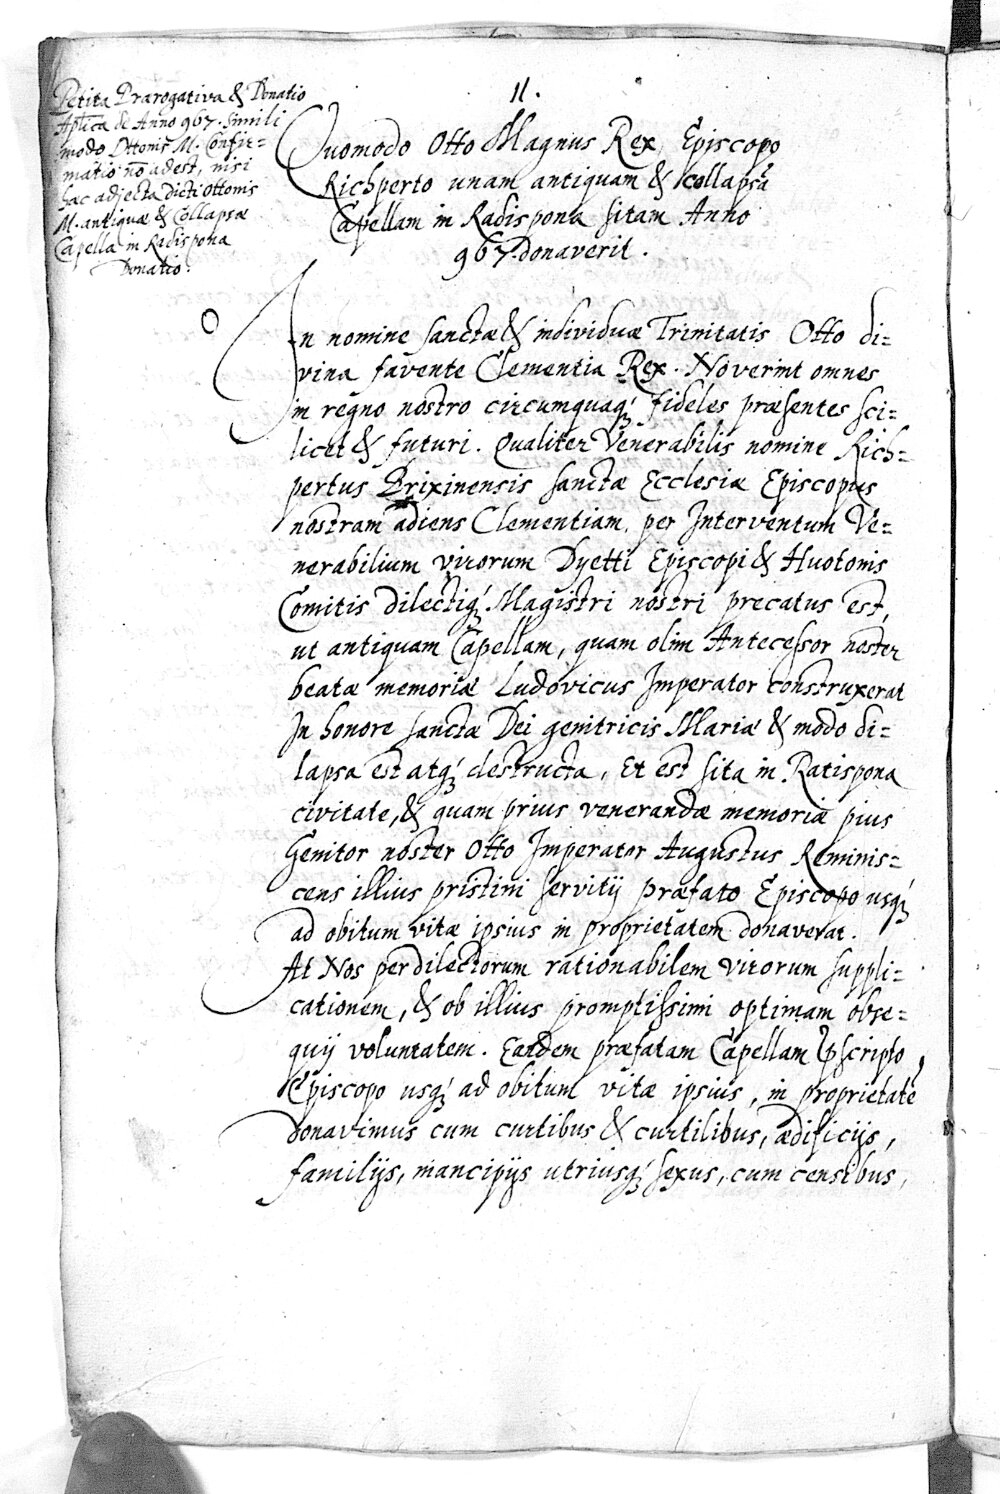 Petita Prærogativa & Donatio
Aplica de Anno 967. simili
modo Ottonis M. Confir=
matio nō adest, nisi
hac adjecta dicti Ottonis
M. antiquæ & Collapsæ
Capella in Radispona
Donatio.
11.
Quomodo Otto Magnus Rex, Episcopo
Richperto unam antiquam & collapsā
Capellam in Radispona sitam Anno
967. donaverit.
In nomine sanctæ & individuæ Trinitatis Otto di=
vina favente Clementia Rex. Noverint omnes
in regno nostro circumquaq; fideles præsentes sci=
licet & futuri. Qualiter Venerabilis nomine Rich=
pertus Brixinensis sanctæ Ecclesiæ Episcopus
nostram adiens Clementiam, per Interventum Ve=
nerabilium virorum Dyetti Episcopi & Huotonis
Comitis dilectiq; Magistri nostri precatus est,
ut antiquam Capellam, quam olim Antecessor noster
beatæ memoriæ Ludovicus Imperator construxerat
In honore sanctæ Dei genitricis Mariæ & modo di=
lapsa est atq; destructa, Et est sita in Ratispona
civitate, & quam prius venerandæ memoriæ pius
Genitor noster Otto Imperator Augustus Reminis=
cens illius pristini servitij præfato Episcopo usq;
ad obitum vitæ ipsius in proprietatem donaverat.
At Nos perdilectorum rationabilem virorum suppli=
cationem, & ob illius promptissimi optimam obse=
quij voluntatem. Eandem præfatam Capellam
Episcopo usq; ad obitum vitæ ipsius, in proprietatē
donavimus cum curtibus & curtilibus, ædificijs,
familijs, mancipijs utriusq; sexus, cum censibus,